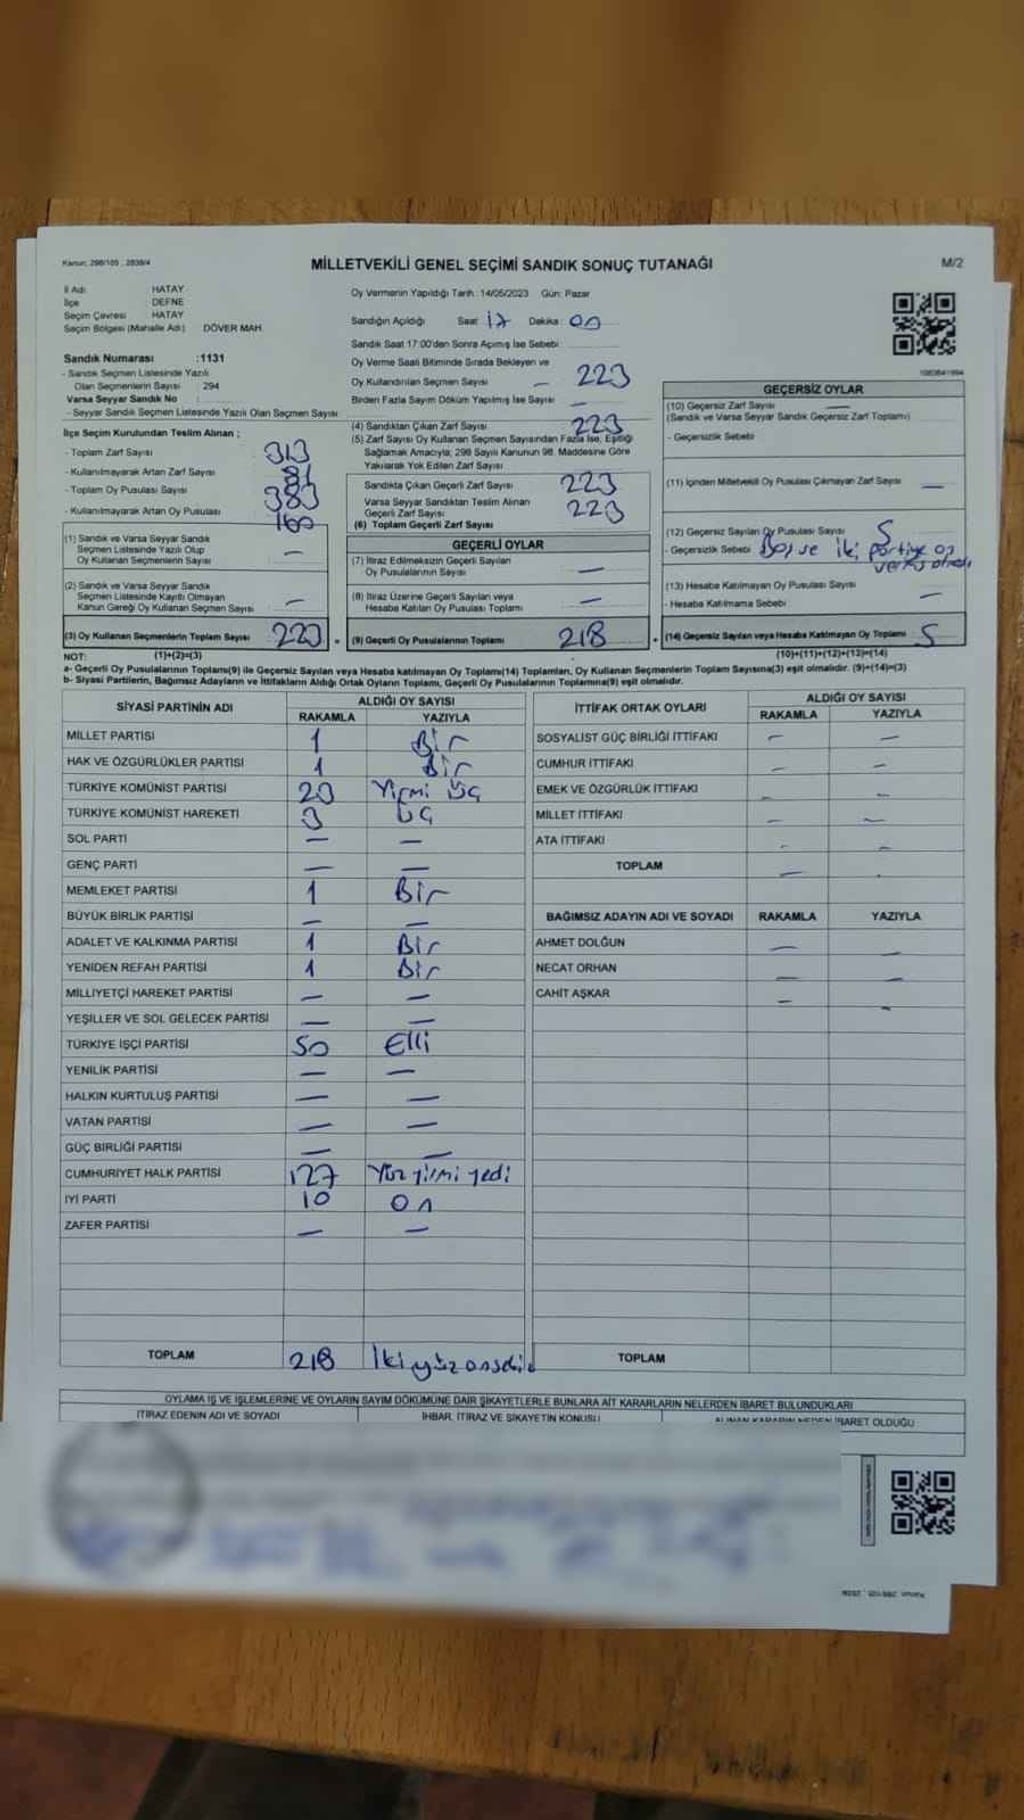 Kanun: 298/105 , 2839/4
MİLLETVEKİLİ GENEL SEÇİMİ SANDIK SONUÇ TUTANAĞI
M/2
İl Adı HATAY
İlçe DEFNE
Seçim Çevresi HATAY
Seçim Bölgesi (Mahalle Adı) DÖVER MAH.
Sandık Numarası :1131
- Sandık Seçmen Listesinde Yazılı
Olan Seçmenlerin Sayısı 294
Varsa Seyyar Sandık No :
- Seyyar Sandık Seçmen Listesinde Yazılı Olan Seçmen Sayısı
İlçe Seçim Kurulundan Teslim Alınan ;
- Toplam Zarf Sayısı 313
- Kullanılmayarak Artan Zarf Sayısı
- Toplam Oy Pusulası Sayısı 383
- Kullanılmayarak Artan Oy Pusulası 160
(1) Sandık ve Varsa Seyyar Sandık
Seçmen Listesinde Yazılı Olup
Oy Kullanan Seçmenlerin Sayısı —
(2) Sandık ve Varsa Seyyar Sandık
Seçmen Listesinde Kayıtlı Olmayan
Kanun Gereği Oy Kullanan Seçmen Sayısı —
(3) Oy Kullanan Seçmenlerin Toplam Sayısı 223
Oy Vermenin Yapıldığı Tarih : 14/05/2023 Gün: Pazar
Sandığın Açıldığı Saat 17 Dakika: on
Sandık Saat 17:00'den Sonra Açımış İse Sebebi
Oy Verme Saati Bitiminde Sırada Bekleyen ve
Oy Kullandırılan Seçmen Sayısı — 223
Birden Fazla Sayım Döküm Yapılmış İse Sayısı —
(4) Sandıktan Çıkan Zarf Sayısı 223
(5) Zarf Sayısı Oy Kullanan Seçmen Sayısından Fazla İse, Eşitliği
Sağlamak Amacıyla; 298 Sayılı Kanunun 98. Maddesine Göre
Yakılarak Yok Edilen Zarf Sayısı
Sandıkta Çıkan Geçerli Zarf Sayısı 223
Varsa Seyyar Sandıktan Teslim Alınan
Geçerli Zarf Sayısı 223
(6) Toplam Geçerli Zarf Sayısı
GEÇERLİ OYLAR
(7) İtiraz Edilmeksizin Geçerli Sayılan
Oy Pusulalarının Sayısı —
(8) İtiraz Üzerine Geçerli Sayılan veya
Hesaba Katılan Oy Pusulası Toplamı —
(9) Geçerli Oy Pusulalarının Toplamı 218
GEÇERSİZ OYLAR
(10) Geçersiz Zarf Sayısı —
(Sandık ve Varsa Seyyar Sandık Geçersiz Zarf Toplamı)
- Geçersizlik Sebebi
(11) İçinden Milletvekili Oy Pusulası Çıkmayan Zarf Sayısı —
(12) Geçersiz Sayılan Oy Pusulası Sayısı 5
- Geçersizlik Sebebi Boş ve iki partiye oy
(13) Hesaba Katılmayan Oy Pusulası Sayısı —
- Hesaba Katılmama Sebebi
(14) Geçersiz Sayılan veya Hesaba Katılmayan Oy Toplamı 5
NOT: (1)+(2)=(3) (10)+(11)+(12)+(13)=(14)
a- Geçerli Oy Pusulalarının Toplamı(9) ile Geçersiz Sayılan veya Hesaba katılmayan Oy Toplamı(14) Toplamları, Oy Kullanan Seçmenlerin Toplam Sayısına(3) eşit olmalıdır. (9)+(14)=(3)
b- Siyasi Partilerin, Bağımsız Adayların ve İttifakların Aldığı Ortak Oyların Toplamı, Geçerli Oy Pusulalarının Toplamına(9) eşit olmalıdır.
SİYASİ PARTİNİN ADI ALDIĞI OY SAYISI
RAKAMLA YAZIYLA
MİLLET PARTİSİ 1 Bir
HAK VE ÖZGÜRLÜKLER PARTİSİ 1 Bir
TÜRKİYE KOMÜNİST PARTİSİ 23 Yirmi üç
TÜRKİYE KOMÜNİST HAREKETİ 3 üç
SOL PARTİ — —
GENÇ PARTİ — —
MEMLEKET PARTİSİ 1 Bir
BÜYÜK BİRLİK PARTİSİ — —
ADALET VE KALKINMA PARTİSİ 1 Bir
YENİDEN REFAH PARTİSİ 1 Bir
MİLLİYETÇİ HAREKET PARTİSİ — —
YEŞİLLER VE SOL GELECEK PARTİSİ — —
TÜRKİYE İŞÇİ PARTİSİ 50 Elli
YENİLİK PARTİSİ — —
HALKIN KURTULUŞ PARTİSİ — —
VATAN PARTİSİ — —
GÜÇ BİRLİĞİ PARTİSİ — —
CUMHURİYET HALK PARTİSİ 127 Yüz yirmi yedi
İYİ PARTİ 10 On
ZAFER PARTİSİ — —
TOPLAM 218 İki yüz onsekiz
İTTİFAK ORTAK OYLARI ALDIĞI OY SAYISI
RAKAMLA YAZIYLA
SOSYALİST GÜÇ BİRLİĞİ İTTİFAKI — —
CUMHUR İTTİFAKI — —
EMEK VE ÖZGÜRLÜK İTTİFAKI — —
MİLLET İTTİFAKI — —
ATA İTTİFAKI — —
TOPLAM —
BAĞIMSIZ ADAYIN ADI VE SOYADI RAKAMLA YAZIYLA
AHMET DOLĞUN — —
NECAT ORHAN — —
CAHİT AŞKAR — -
TOPLAM
OYLAMA İŞ VE İŞLEMLERİNE VE OYLARIN SAYIM DÖKÜMÜNE DAİR ŞİKAYETLERLE BUNLARA AİT KARARLARIN NELERDEN İBARET BULUNDUKLARI
İTİRAZ EDENİN ADI VE SOYADI İHBAR, İTİRAZ VE ŞİKAYETİN KONUSU ALINAN KARARIN NEDEN İBARET OLDUĞU